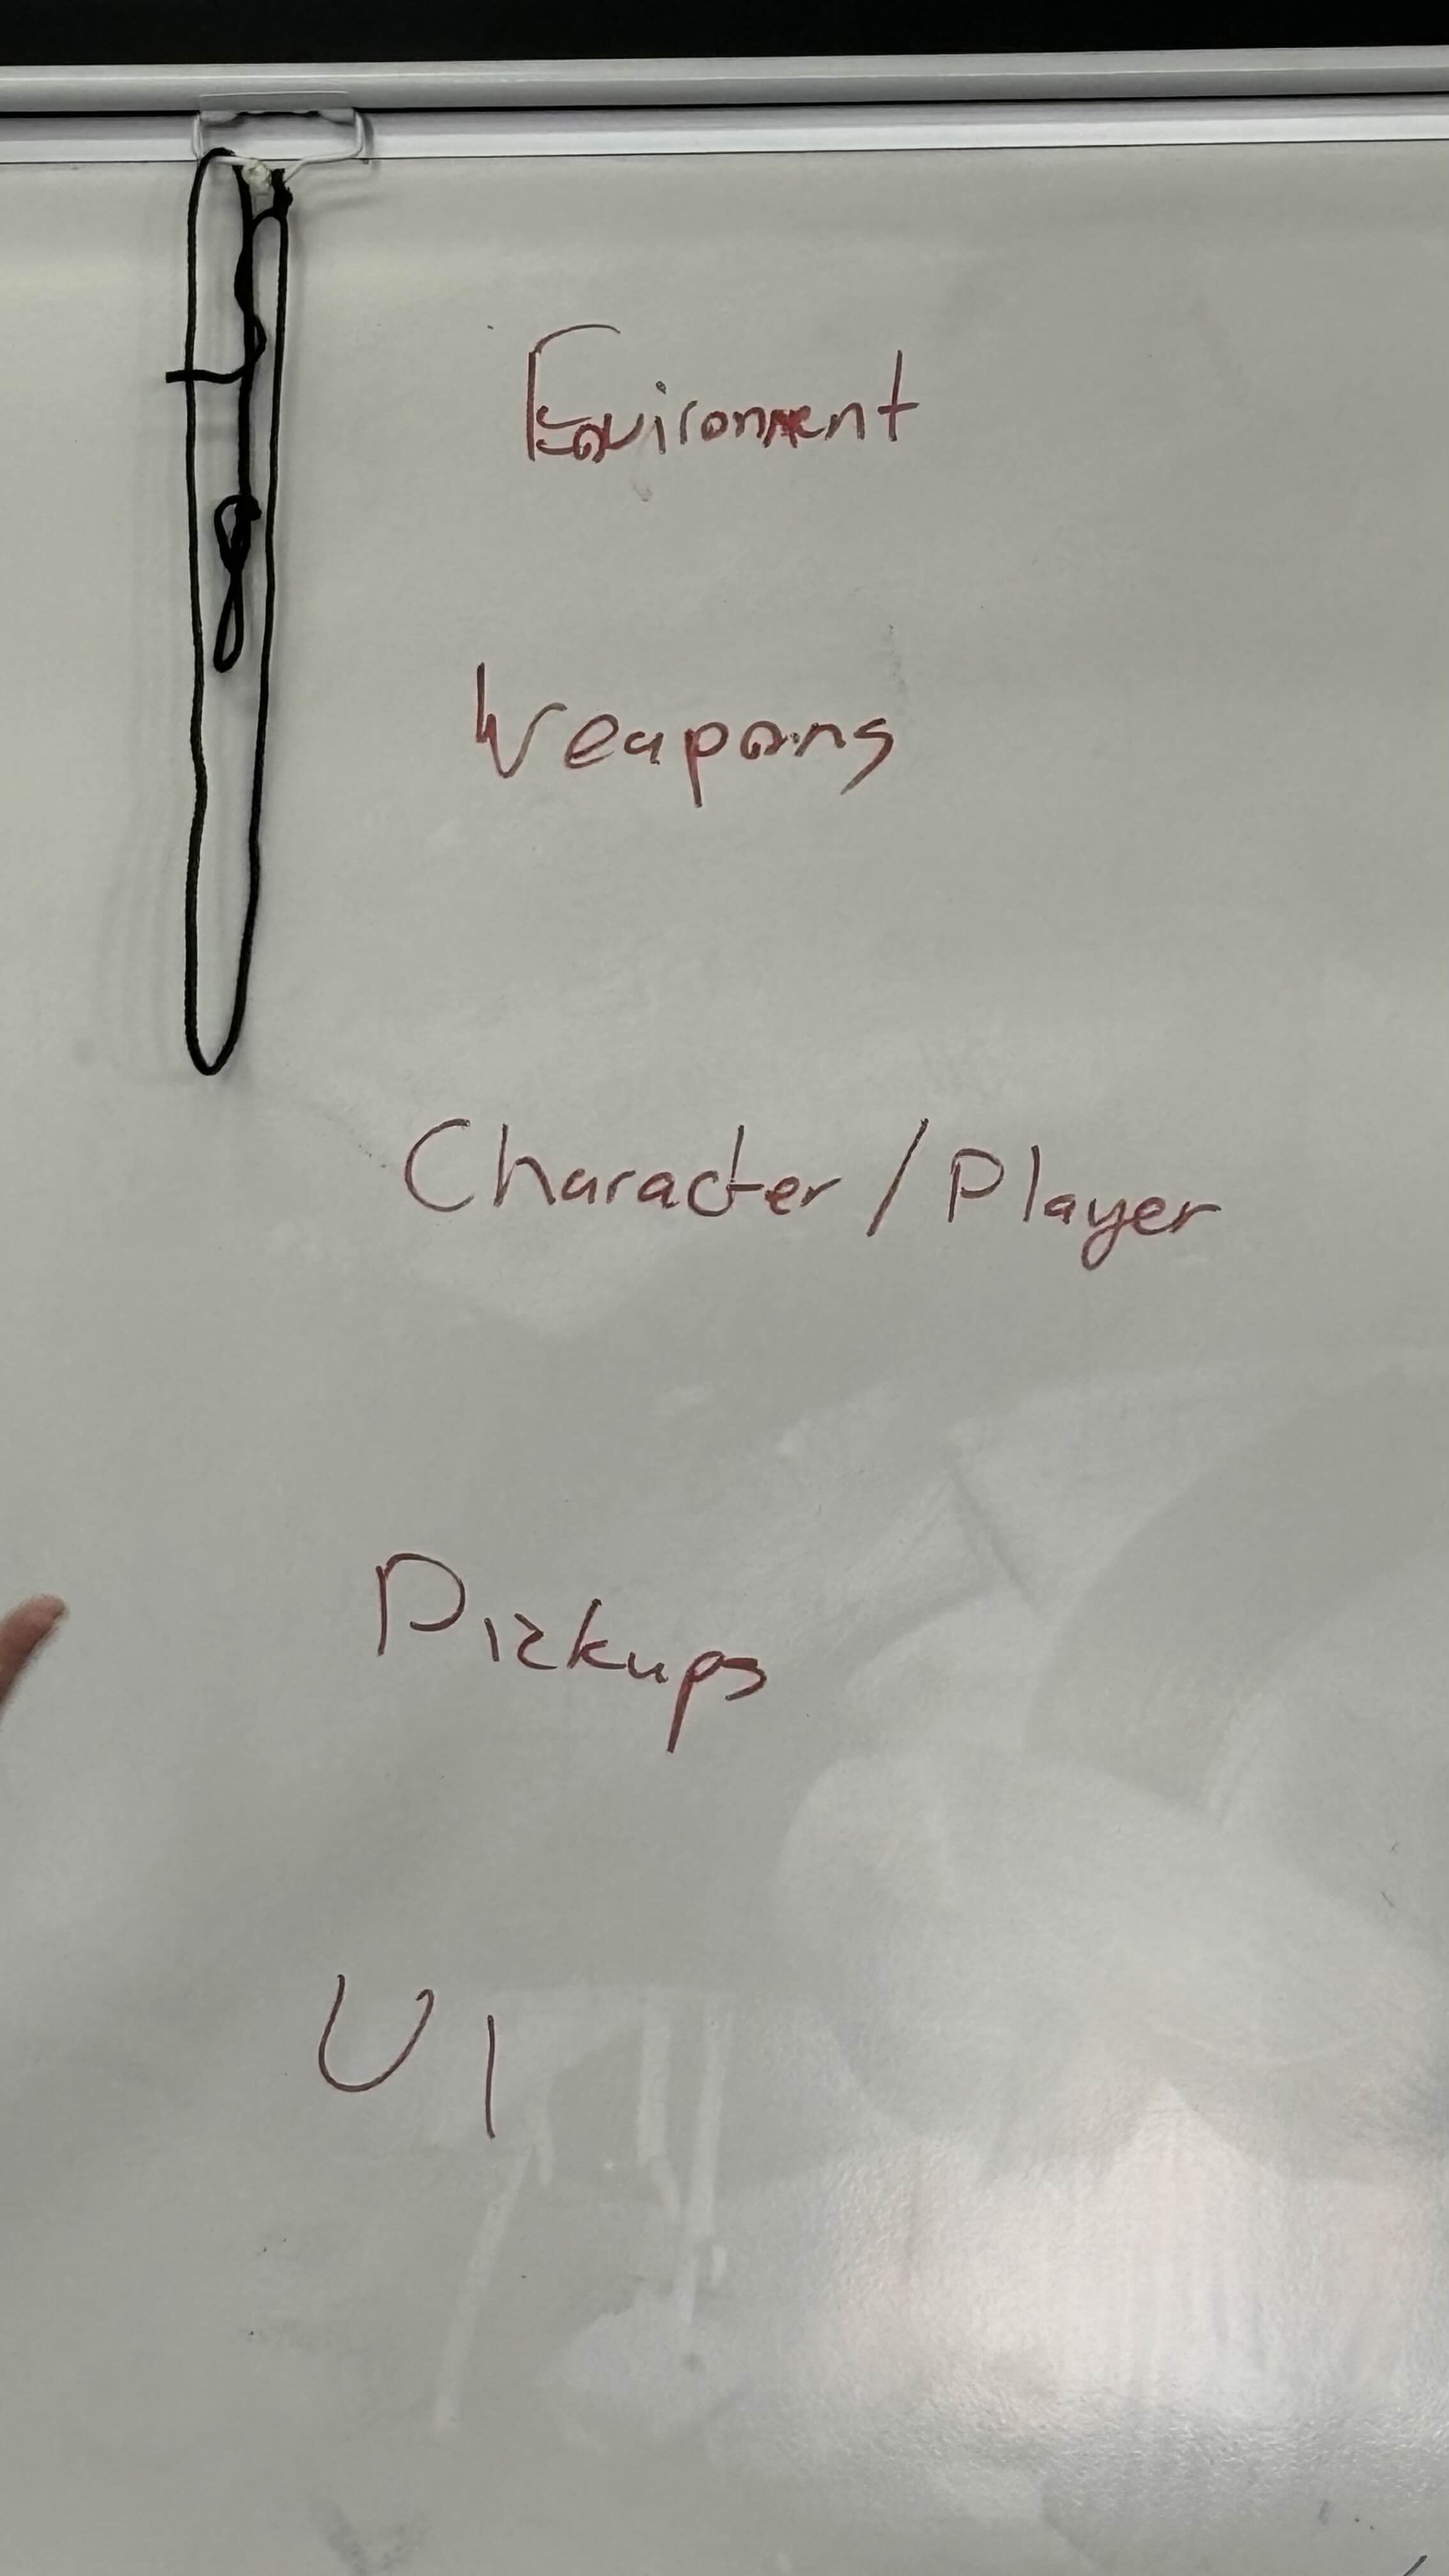 Enviroment
Weapons
Character / Player
Pickups
UI